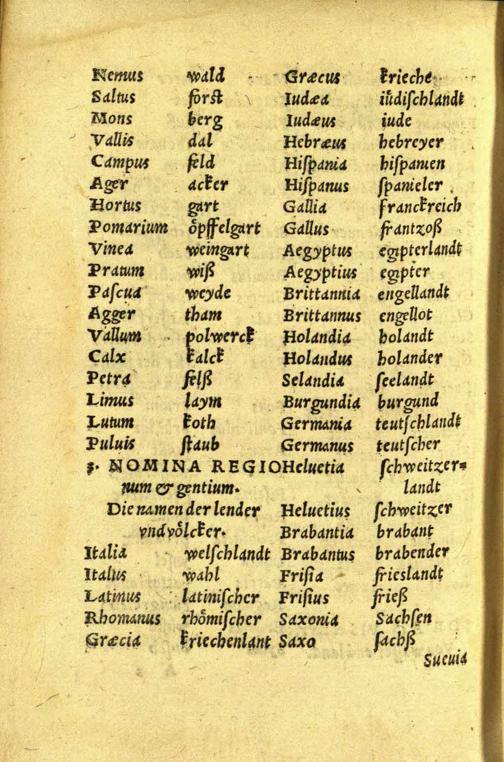 Nemus wald
Saltus forſt
Mons berg
Vallis dal
Campus feld
Ager acker
Hortus gart
Pomarium oͤpffelgart
Vinea weingart
Pratum wiß
Paſcua weyde
Agger tham
Vallum polwerck
Calx kalck
Petra felß
Limus laym
Lutum koth
Puluis ſtaub
3. NOMINA REGIO
num & gentium.
Die namen der lender
vnd voͤlcker.
Italia welſchlandt
Italus wahl
Latinus latiniſcher
Rhomanus rhoͤmiſcher
Græcia kriechenlant
Græcus krieche
Iudæa iuͤdiſchlandt
Iudæus iude
Hebræus hebreyer
Hiſpania hiſpanien
Hiſpanus ſpanieler
Gallia franckreich
Gallus frantzoß
Aegyptus egipterlandt
Aegyptius egipter
Brittannia engellandt
Brittannus engellot
Holandia holandt
Holandus holander
Selandia ſeelandt
Burgundia burgund
Germania teutſchlandt
Germanus teutſcher
Heluetia ſchweitzer=
landt
Heluetius ſchweitzer
Brabantia brabant
Brabantus brabender
Friſia frieslandt
Friſius frieß
Saxonia Sachſen
Saxo ſachß
Sueuia